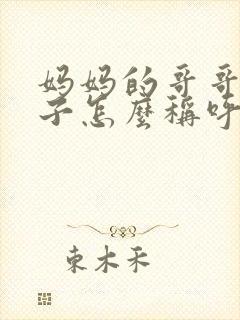 妈妈的哥哥
子怎麼稱呼
東木禾